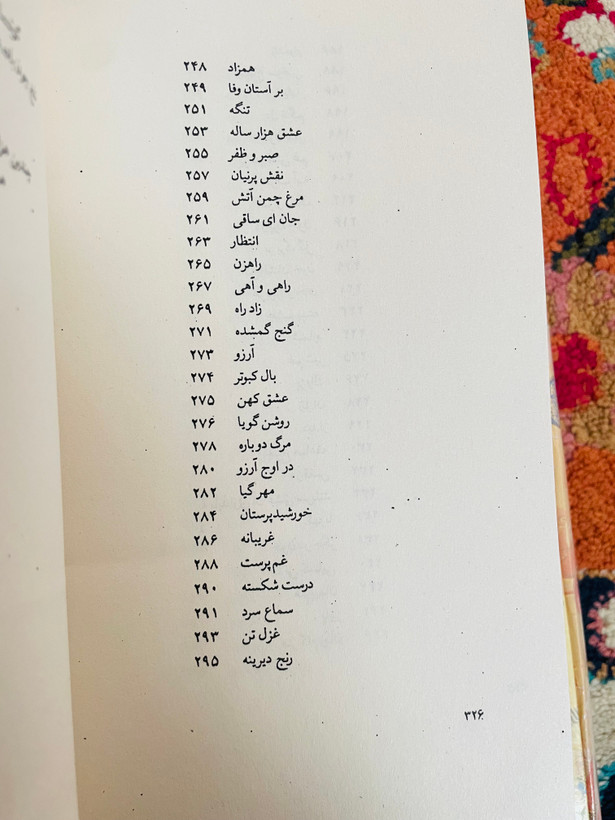 همزاد ۲۴۸
بر آستان وفا ۲۴۹
تنگه ۲۵۱
عشق هزار ساله ۲۵۳
صبر و ظفر ۲۵۵
نقش پرنیان ۲۵۷
مرغ چمن آتش ۲۵۹
جان ای ساقی ۲۶۱
انتظار ۲۶۳
راهزن ۲۶۵
راهی و آهی ۲۶۷
زاد راه ۲۶۹
گنج گمشده ۲۷۱
آرزو ۲۷۳
بال کبوتر ۲۷۴
عشق کهن ۲۷۵
روشن گویا ۲۷۶
مرگ دوباره ۲۷۸
در اوج آرزو ۲۸۰
مهر گیا ۲۸۲
خورشیدپرستان ۲۸۴
غریبانه ۲۸۶
غم پرست ۲۸۸
درست شکسته ۲۹۰
سماع سرد ۲۹۱
غزل تن ۲۹۳
رنج دیرینه ۲۹۵
۳۲۶